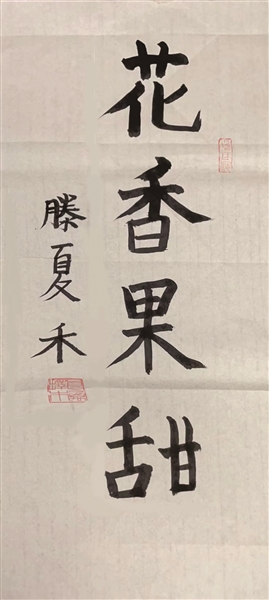 花香果甜
滕夏禾